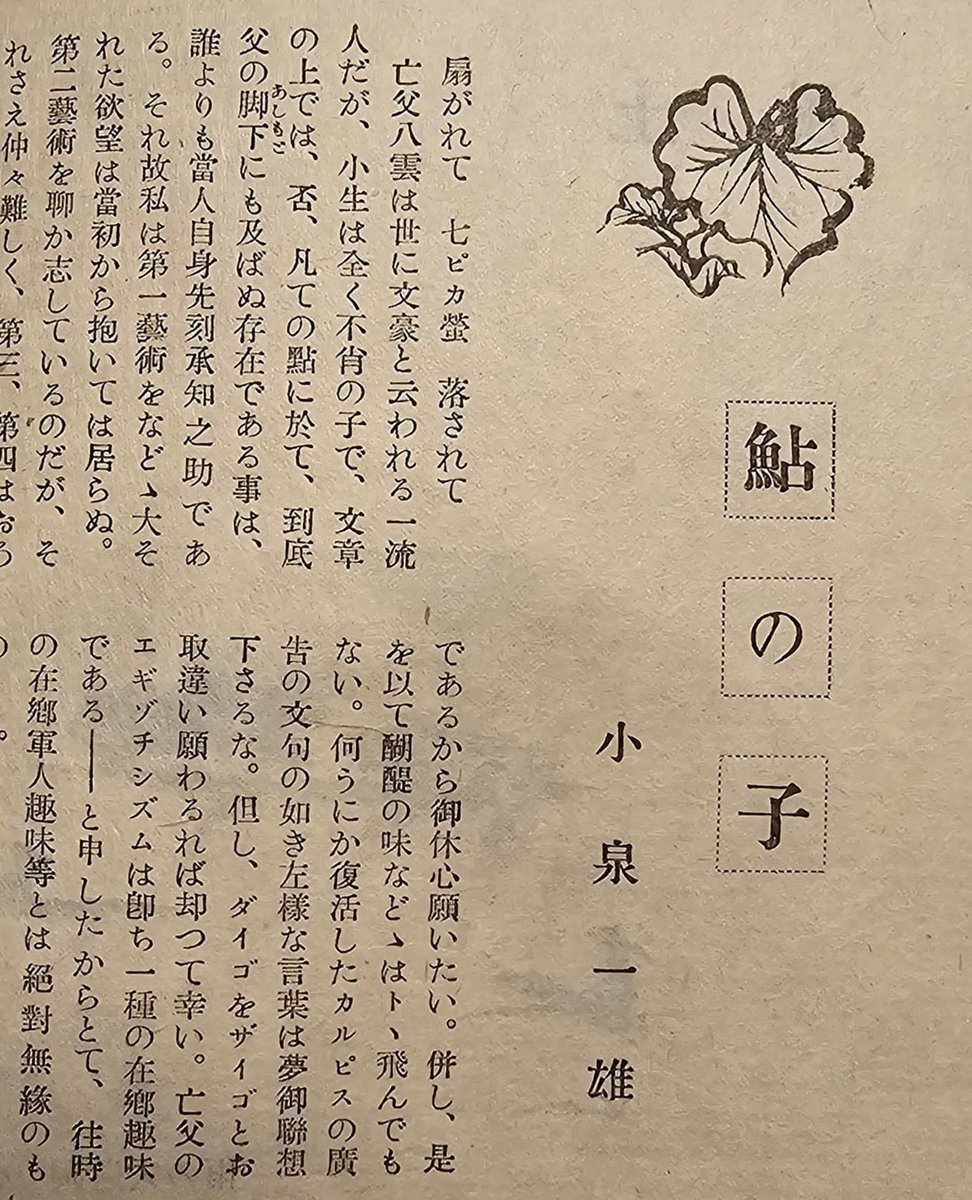 鮎の子
小泉一雄
扇がれて　七ピカ螢　落されて
亡父八雲は世に文豪と云われる一流
人だが、小生は全く不肖の子で、文章
の上では、否、凡ての點に於て、到底
父の脚下にも及ばぬ存在である事は、
あしもと
誰よりも當人自身先刻承知之助であ
る。それ故私は第一藝術をなどゝ大そ
れた欲望は當初から抱いては居らぬ。
第二藝術を聊か志しているのだが、そ
れさえ仲々難しく、第三、第四はおろ
であるから御休心願いたい。併し、是
を以て醐醍の味などゝはトヽ飛んでも
ない。何うにか復活したカルピスの廣
告の文句の如き左樣な言葉は夢御聯想
下さるな。但し、ダイゴをザイゴとお
取違い願わるれば却つて幸い。亡父の
エギゾチシズムは卽ち一種の在鄕趣味
である──と申したからとて、往時
の在鄕軍人趣味等とは絕對無緣のも